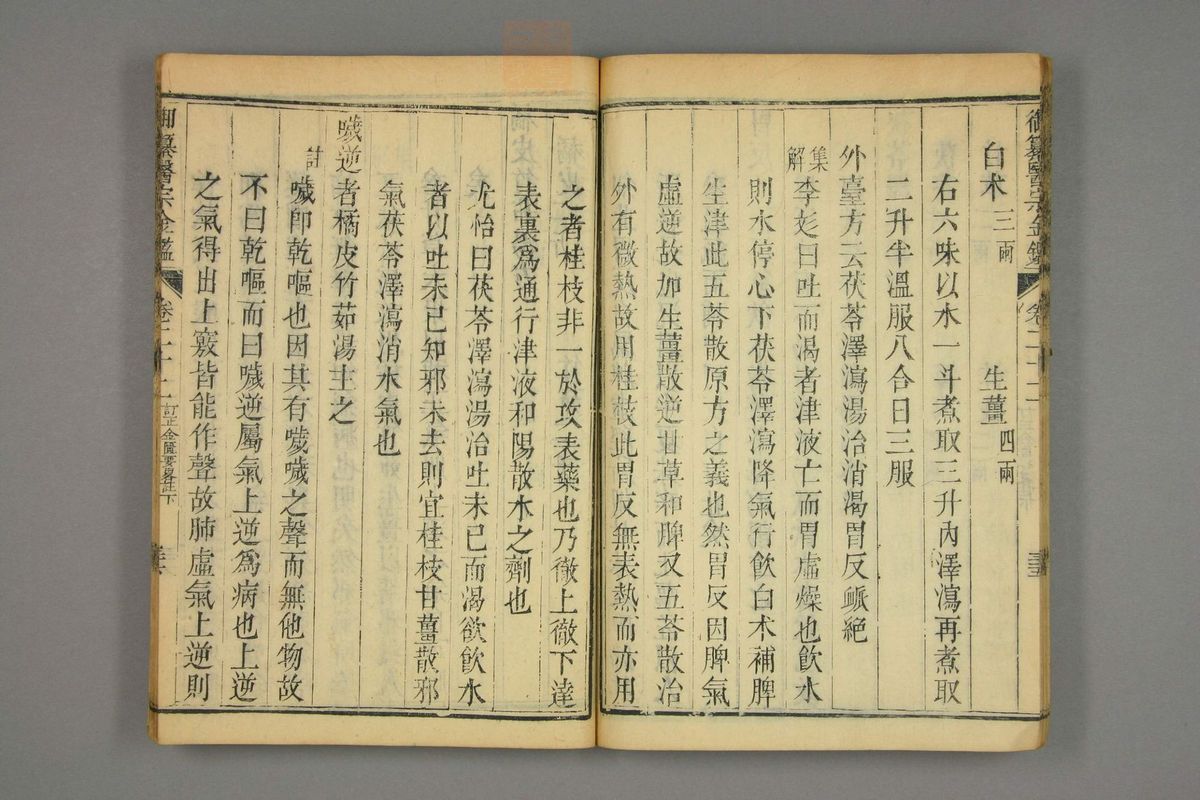 御纂醫宗金鑑 卷二十二
白术三兩 生薑四兩
右六味以水一斗煮取三升內澤瀉再煮取
二升半溫服八合日三服
外臺方云茯苓澤瀉湯治消渴胃反脈絕
集解李彣曰吐而渴者津液亡而胃虛燥也飲水
則水停心下茯苓澤瀉降氣行飲白术補脾
生津此五苓散原方之義也然胃反因脾氣
虛逆故加生薑散逆甘草和脾又五苓散治
外有微熱故用桂枝此胃反無表熱而亦用
之者桂枝非一於攻表藥也乃徹上徹下達
表裏為通行津液和陽散水之劑也
尤怡曰茯苓澤瀉湯治吐未已而渴欲飲水
者以吐未已知邪未去則宜桂枝甘薑散邪
氣茯苓澤瀉消水氣也
噦逆者橘皮竹茹湯主之
註噦卽乾嘔也因其有噦噦之聲而無他物故
不曰乾嘔而曰噦逆屬氣上逆為病也上逆
之氣得出上竅皆能作聲故肺虛氣上逆則
御纂醫宗金鑑 卷二十二 訂正金匱要畧註下